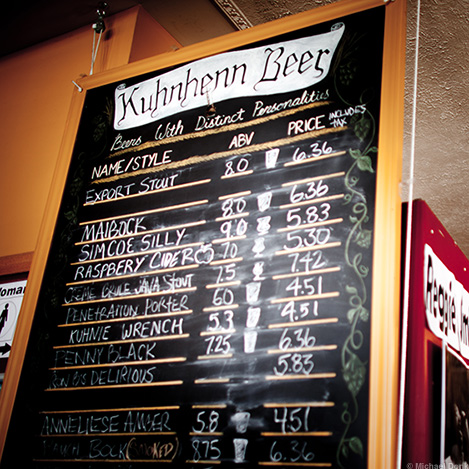 Kuhnhenn Beer
Beers With Distinct Personalities
NAME/STYLE ABV PRICE INCLUDES TAX
EXPORT STOUT 8.0 6.36
MAIBOCK 8.0 6.36
SIMCOE SILLY 9.0 5.83
RASPBERY CIDER 7.0 5.30
CREME BRULE JAVA STOUT 7.5 7.42
PENETRATION PORTER 6.0 4.51
KUHNIE WRENCH 5.3 4.51
PENNY BLACK 7.25 6.36
DELIRIOUS 5.83
ANNELIESE AMBER 5.8 4.51
BOCK (SMOKED) 8.75 6.36
Woman
Reggie
© Michael